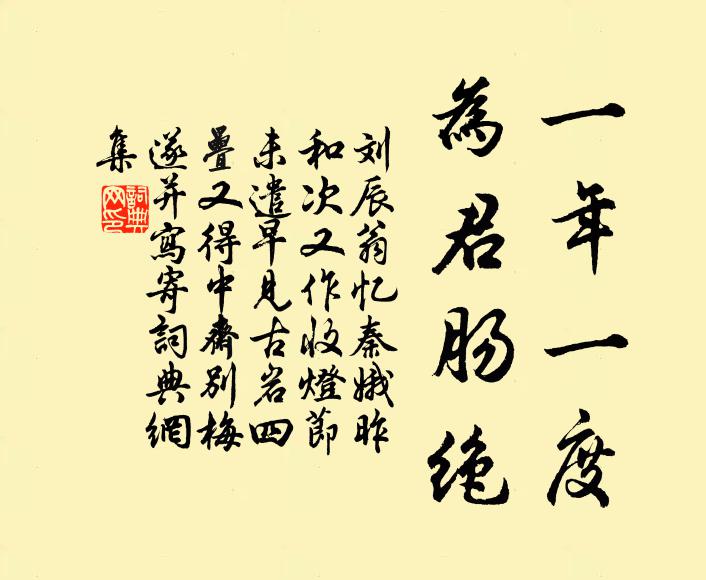 一年一度
為君肠绝
刘辰翁忆秦娥昨
和次又作收燈節
未遣早見古岩四
疊又得中齋别梅
遂并寫寄詞典網
集
詞典
网印